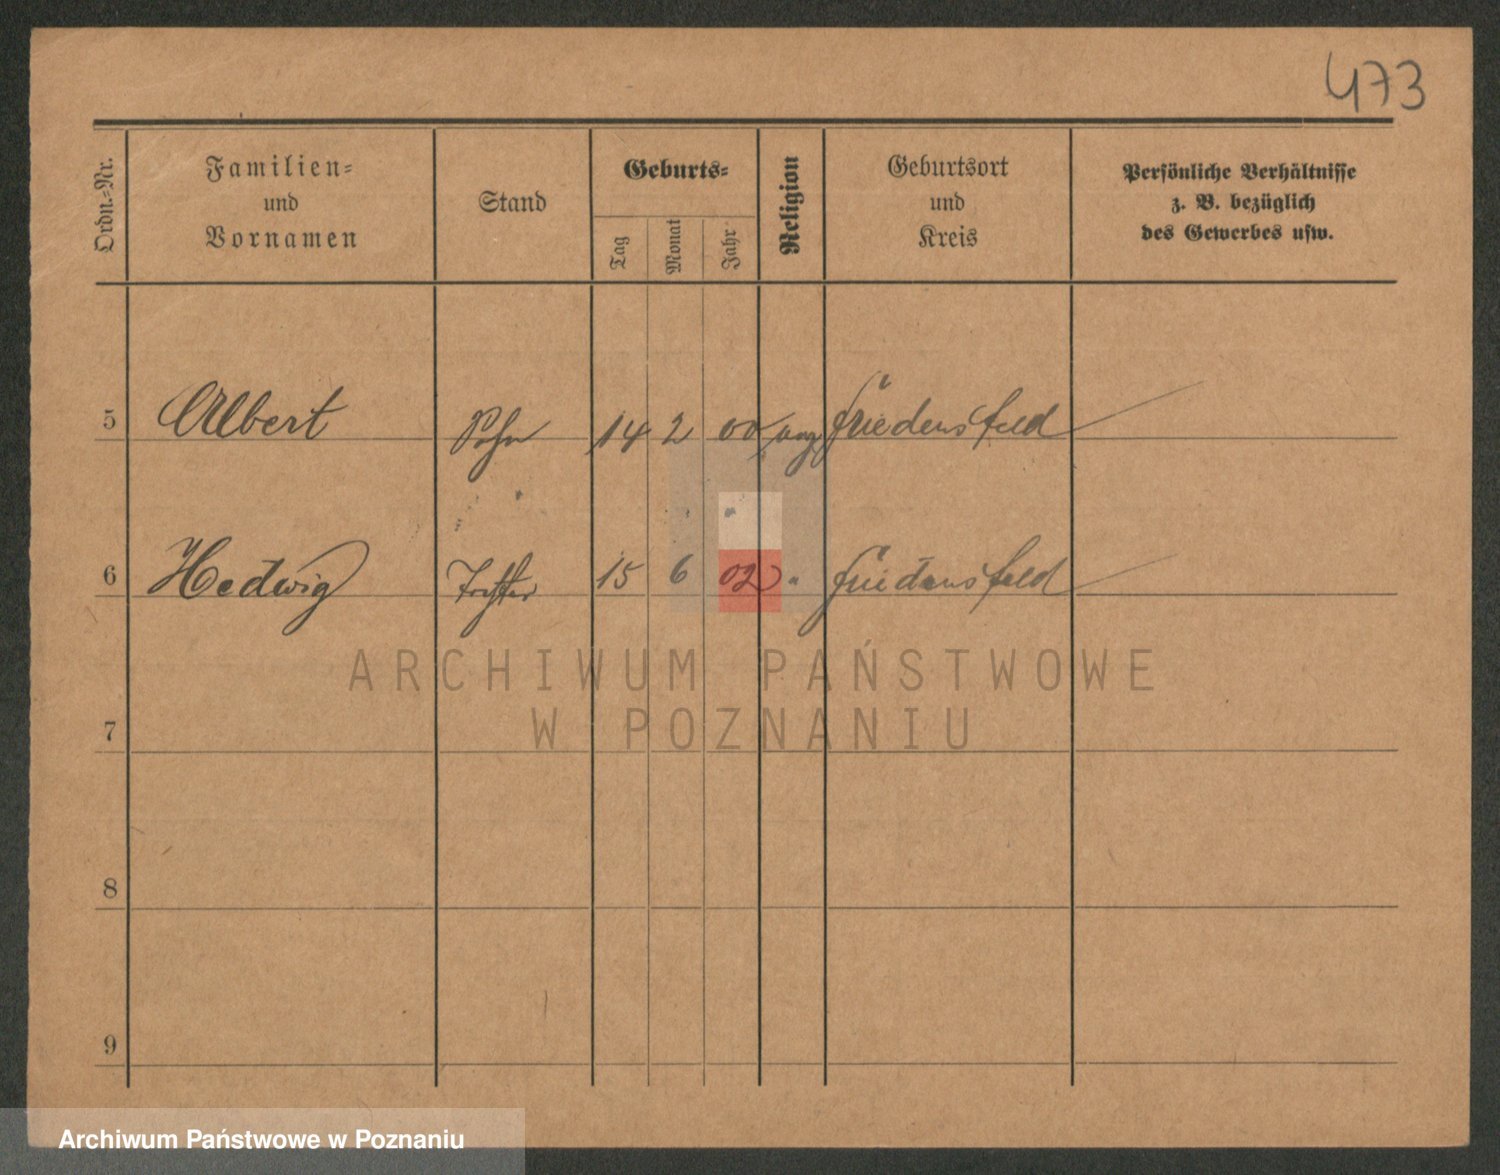 473
Ordn.-Nr.
Familien-
und
Vornamen
Stand
Geburts-
Tag
Monat
Jahr
Religion
Geburtsort
und
Kreis
Persönliche Verhältnisse
z. B. bezüglich
des Gewerbes usw.
5 Albert Sohn 14 2 00 evg Friedensfeld
6 Hedwig Tochter 15 6 02 " Friedensfeld
ARCHIWUM PAŃSTWOWE
W POZNANIU
7
8
9
Archiwum Państwowe w Poznaniu